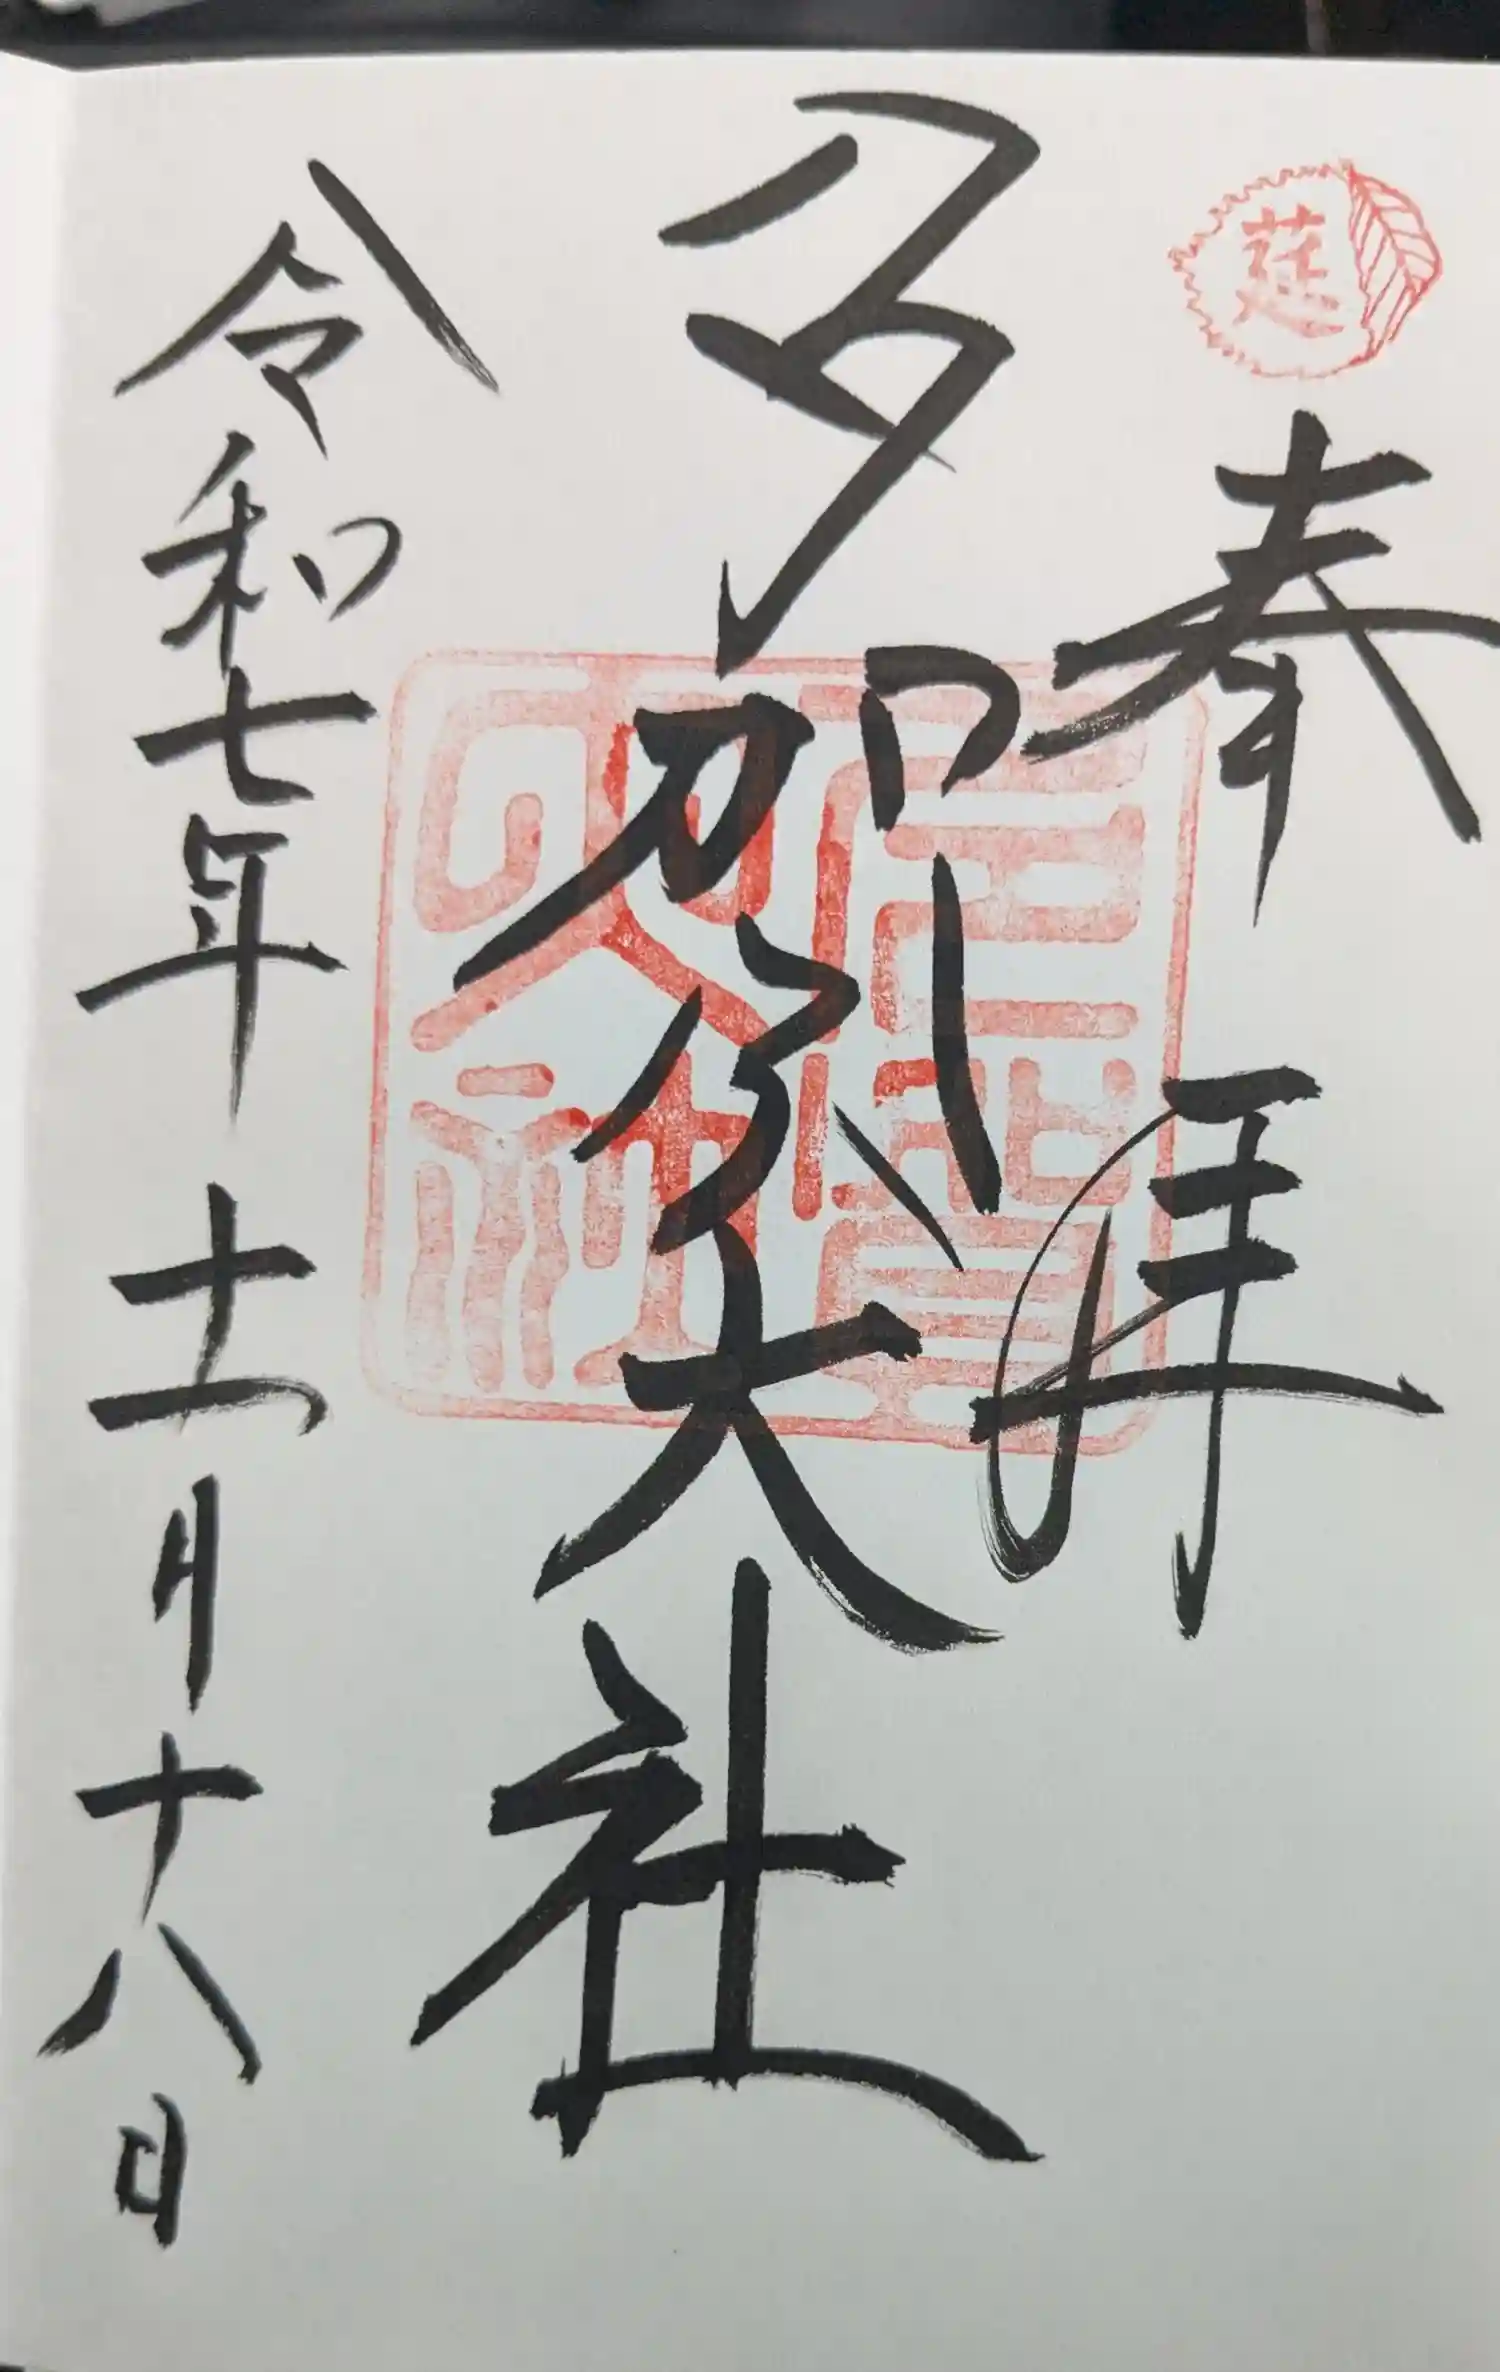 莚
奉拝
多賀大社
令和七年十一月十八日